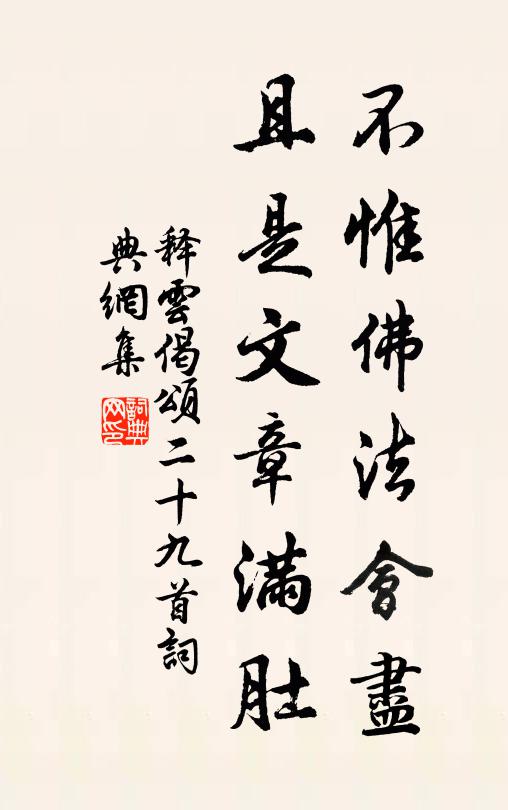 不惟佛法會盡
且是文章滿肚
释雲偈頌二十九首詞
典網集
詞典
网印